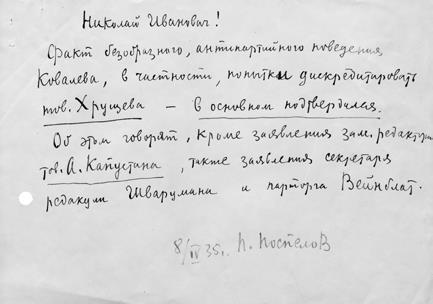 Николай Иванович!
Факт безобразного, антипартийного поведения
Ковалева, в частности, попытки дискредитировать
тов. Хрущева – в основном подтвердился.
Об этом говорят, кроме заявления зам. редактора
тов. А. Капустина, также заявления секретаря
редакции Шварумана и парторга Вейнблат.
8/IV 35г. П. Поспелов